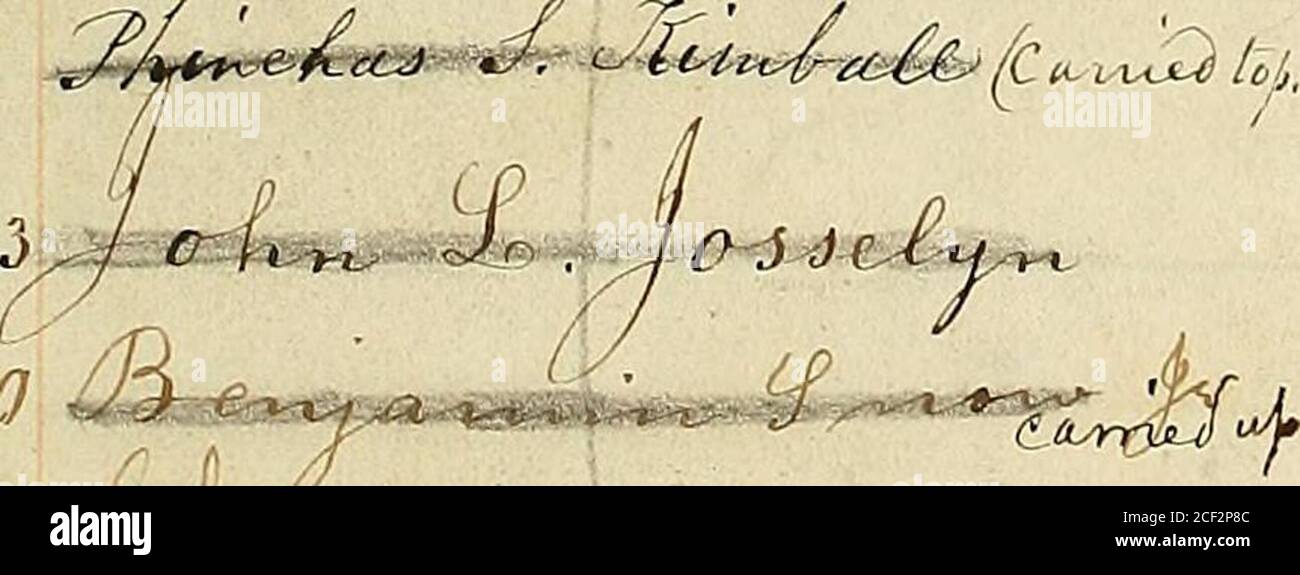 Phinehas S. Kimball (Carried top.
3 John L. Josselyn
Benjamin Snow Jr
carried up
alamy
Image ID: 2CF2P8C
www.alamy.com